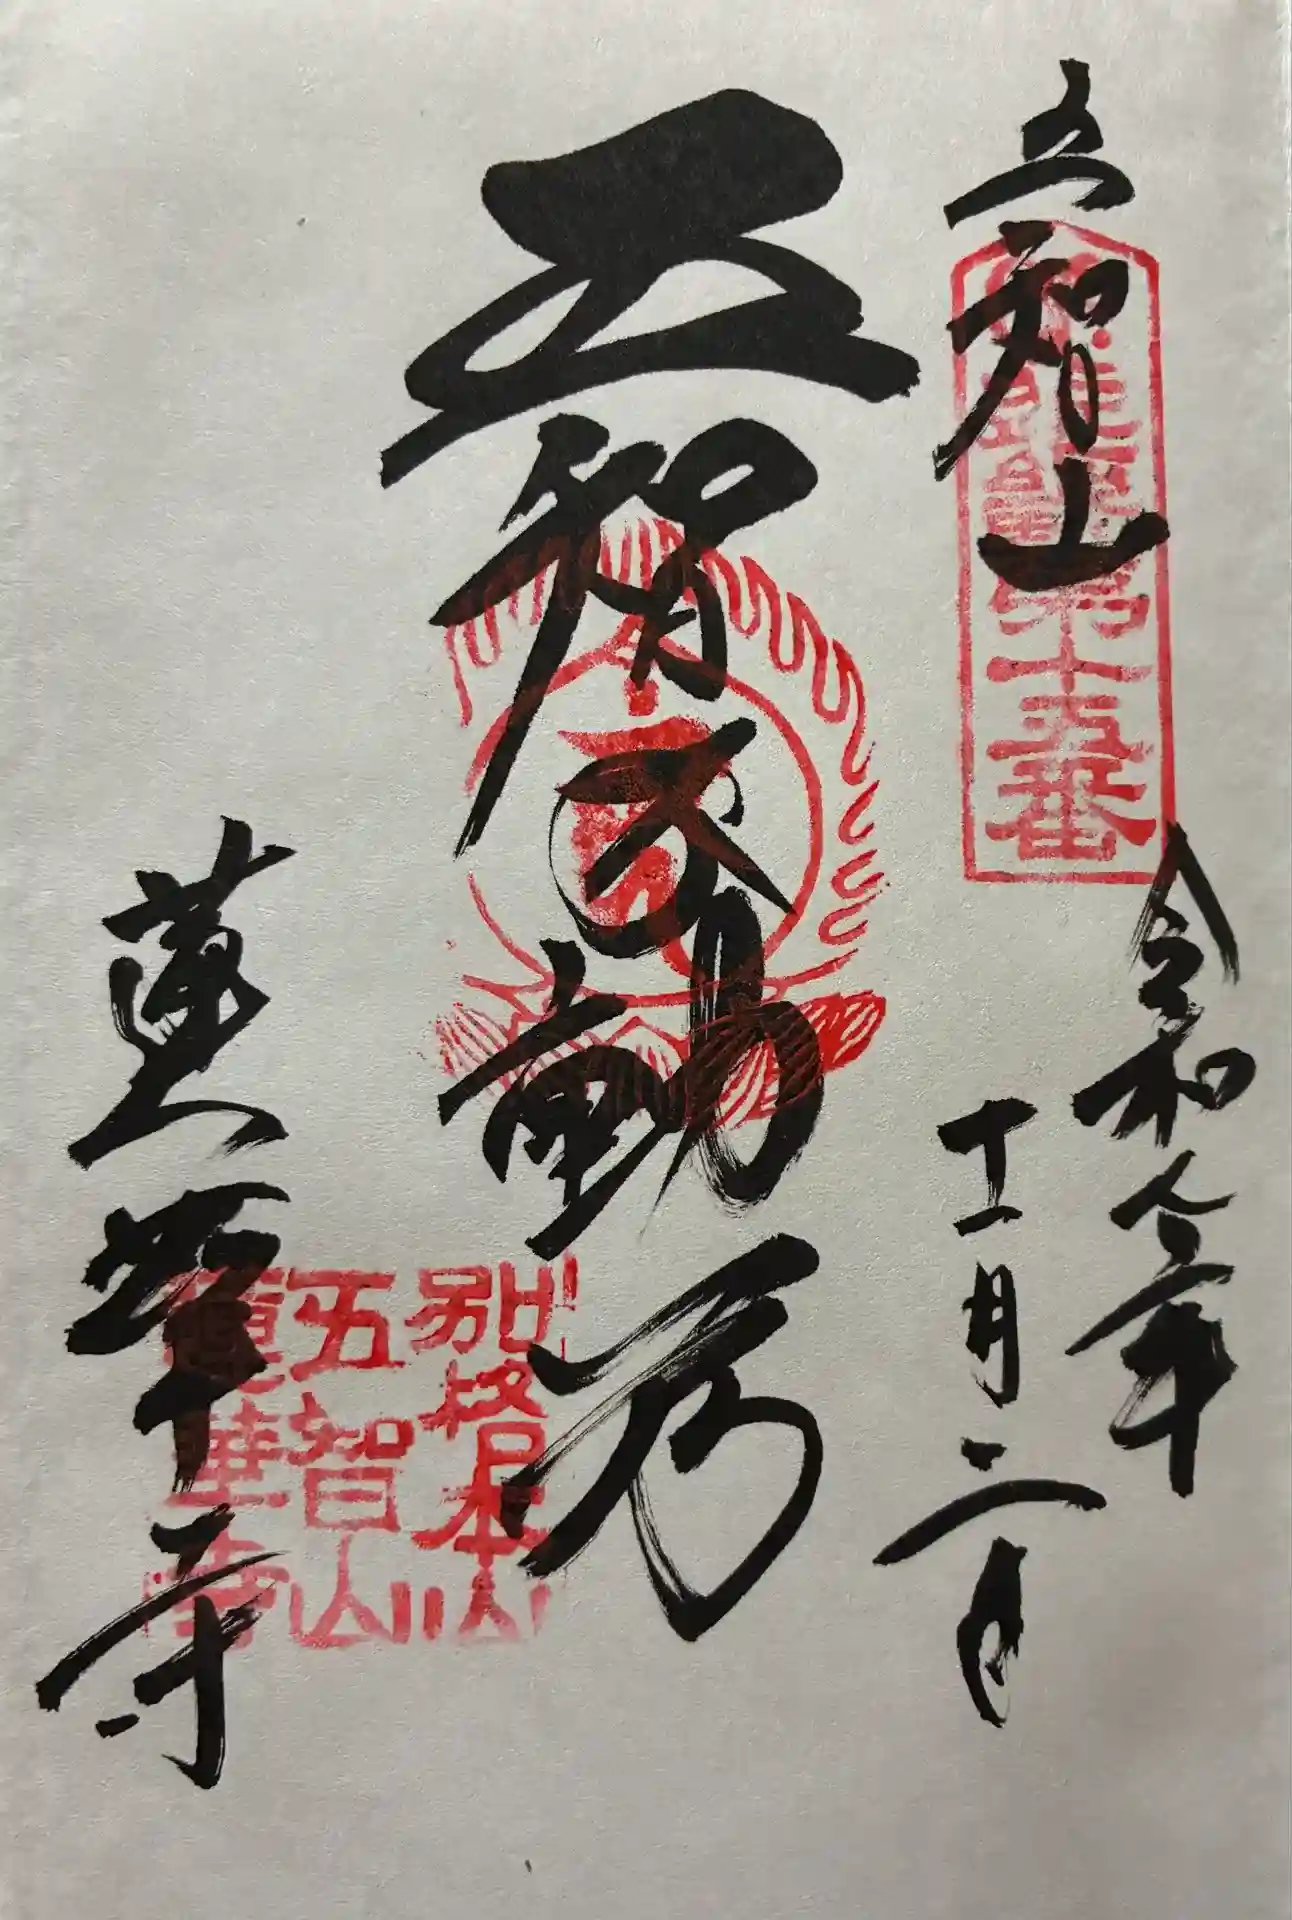 五智山
第十五番
令和
年
十一月二日
五智不動尊
別格本山
五智山
蓮華寺
蓮華寺